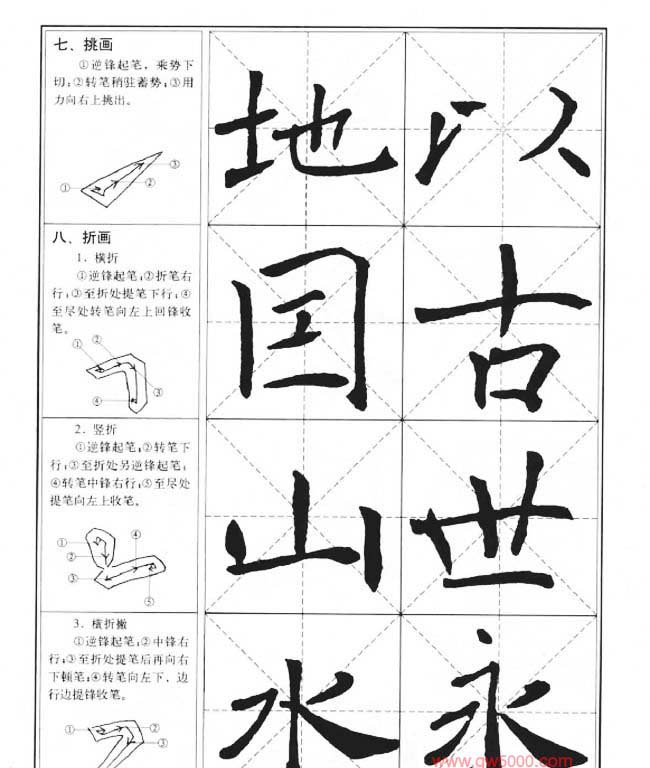 七、挑画
①逆锋起笔，乘势下
切；②转笔稍驻蓄势；③用
力向右上挑出。
① ② ③
地 以
八、折画
1. 横折
①逆锋起笔；②折笔右
行；③至折处提笔下行；④
至尽处转笔向左上回锋收
笔。
① ② ③ ④
古
2. 竖折
①逆锋起笔；②转笔下
行；③至折处另逆锋起笔；
④转笔中锋右行；⑤至尽处
提笔向左上收笔。
① ② ③ ④ ⑤
山 世
3. 横折撇
①逆锋起笔；②中锋右
行；③至折处提笔后再向右
下顿笔；④转笔向左下，边
行边提锋收笔。
① ② ③
水 永
www.qw5000.com